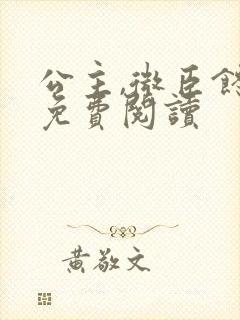 公主,微臣
免費閱讀
黃敬文